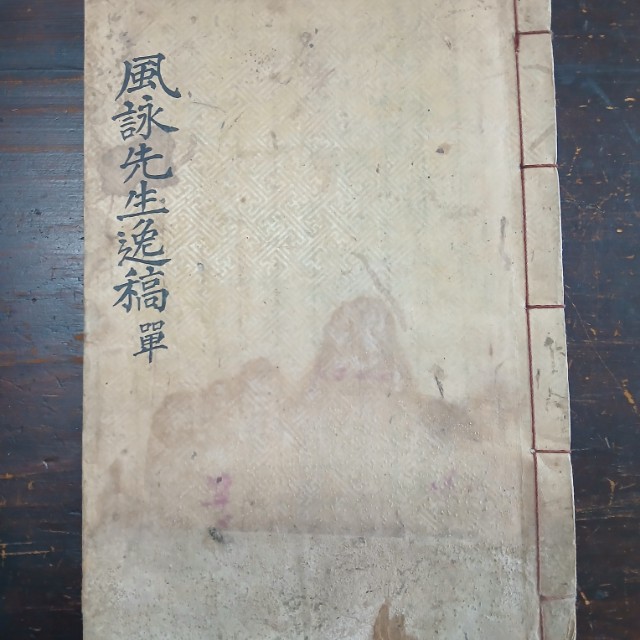 風詠先生逸稿 單